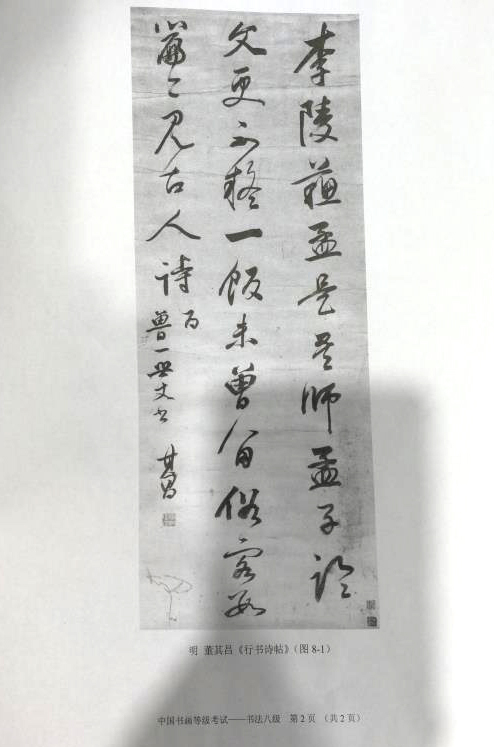 李陵蘓孟是吾師孟子论
文更不疑一飯未曾留俗客数
篇〻見古人詩 为
曾一无丈书 其昌
明 董其昌《行书诗帖》（图 8-1）
中国书画等级考试——书法八级 第 2 页 （共 2 页）